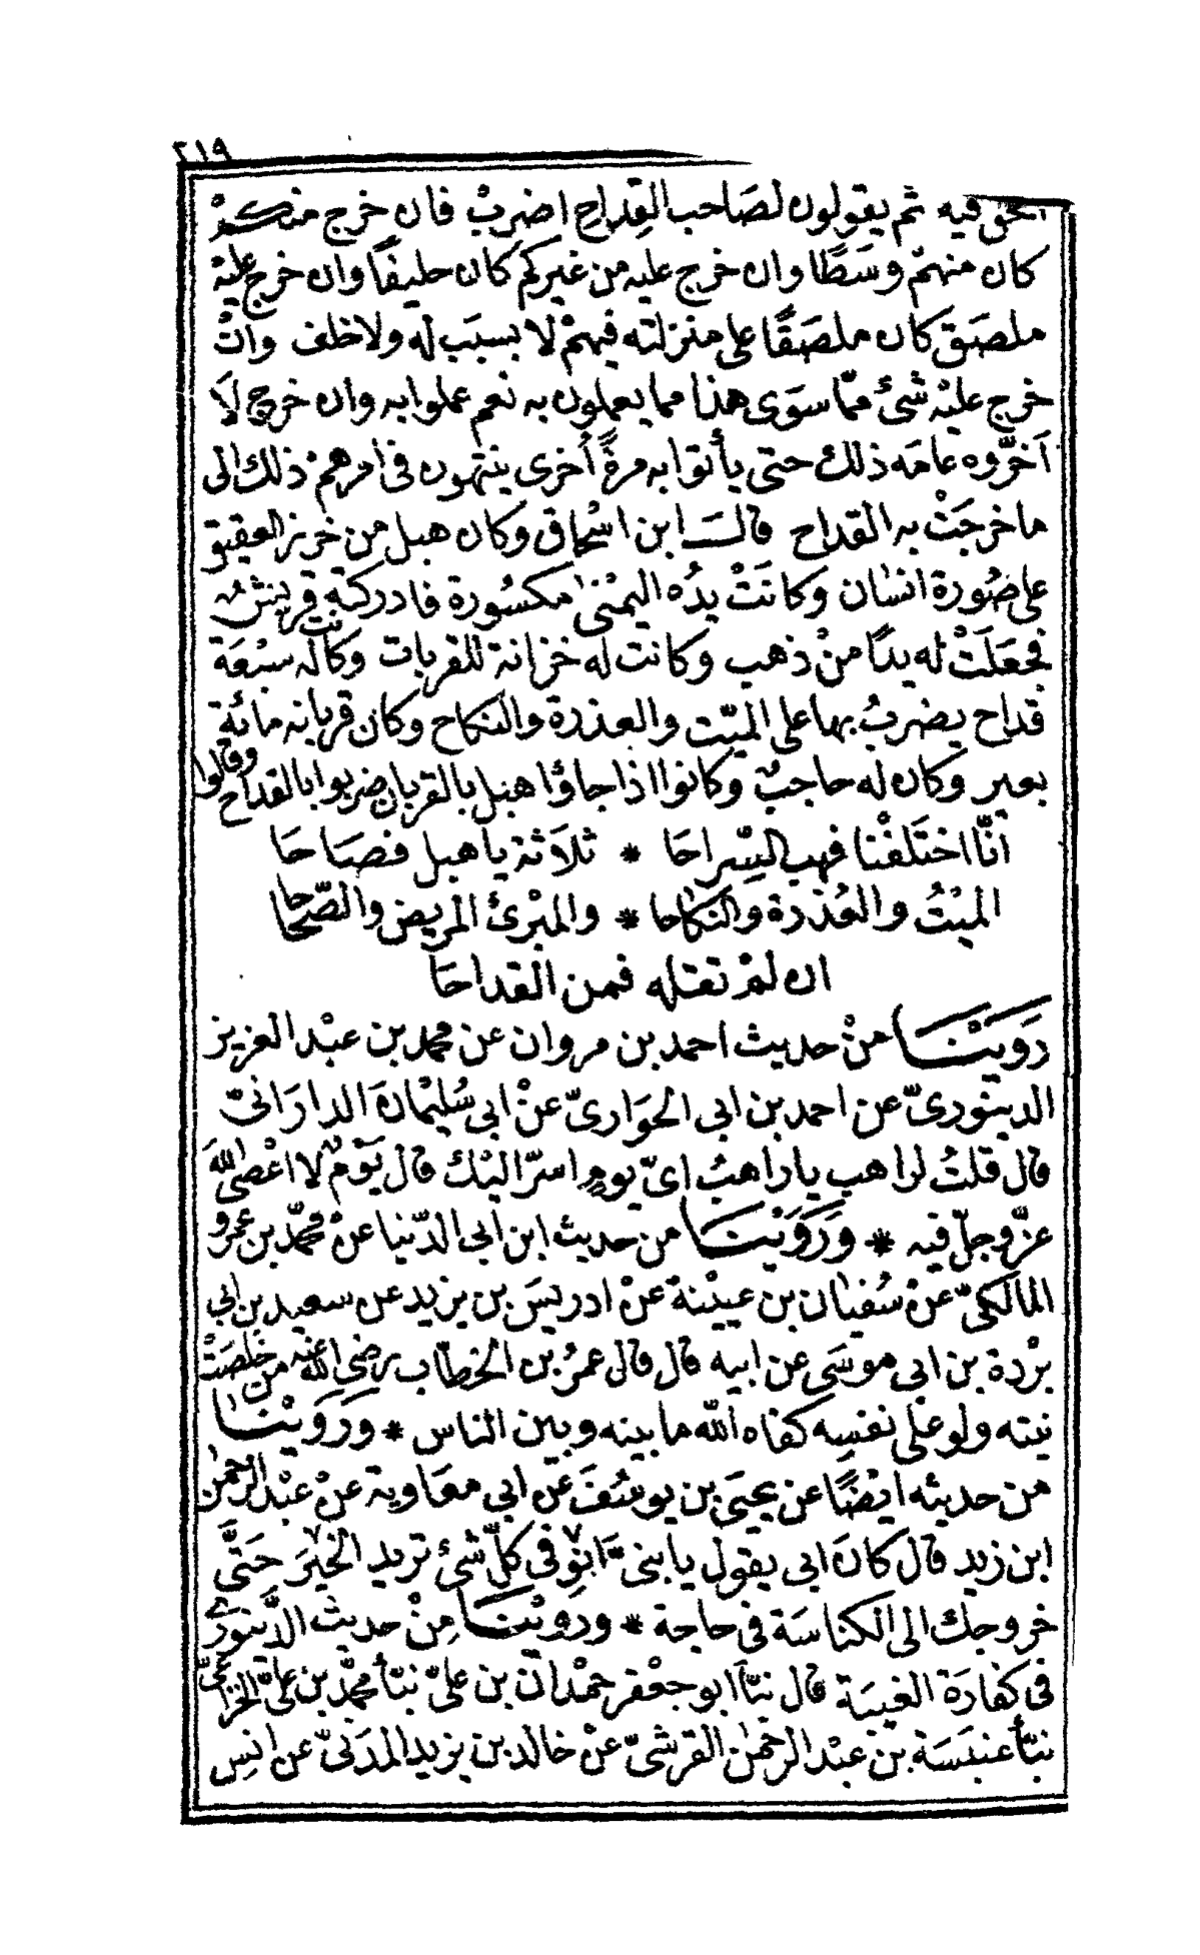 ٢١٩
الحق فيه ثم يقولون لصَاحب القِداحِ اضربْ فان خرج منكمْ
كان منهمْ وسَطًا وان خرج عليه من غيركم كان حليفًا وان خرج عليْه
ملصَق كان ملصَقًا على منزلته فيهمْ لا بسبَب له ولا خلف وانْ
خرج عليْه شئ ممّا سوَى هذا مما يعملون به نعم عملوا به وان خرج لَا
اَخّروه عامَه ذلك حتى يأتوا به مرةً اُخرى ينتهون فى امرهمْ ذلك الى
ما خرجَتْ به القداح قالــَ ابن اسْحاق وكان هبل من خرز العقيق
على صُورة انسٰان وكانَتْ يدُه اليمْنىٰ مكسُورة فادركته قريشٌ
فجعَلَتْ له يدًا منْ ذهب وكانت له خزانة للقربات وكانت له سبْعَة
قداح يضربُ بها على الميّت والعذرة والنكاح وكان قربانه مائة
بعير وكان له حاجبٌ وكانوا اذا جاؤا هبل بالقربان ضربوا بالقداح وقالوا
انّا اختَلَفْنا فهب السِّراحَا * ثلاَثة يا هبل فصَبَاحَا
الميْتُ والعُذرة والنكاحا * والمبْرئ المريض والصّحاحا
ان لمْ تقله فمن القداحَا
رَوَيْنَــا منْ حديث احمد بن مروان عن محمد بن عبْد العزيز
الدينورىّ عن احمد بن ابى الحوَارىّ عنْ ابى سُليْمانَ الدارَانىّ
قال قلتُ لراهب يا راهبُ اىّ يومٍ اسرّ اليْك قال يَوْمٌ لا اعْصى اللهَ
عزّ وجلّ فيه * وَرَوَيْنَــا من حديث ابن ابى الدّنيا عنْ محمّد بن عمرو
المالَكىّ عنْ سُفيٰان بن عيينة عنْ ادريسَ بن يزيد عن سعيد بن ابى
برْدة بن ابى موسَى عن ابيه قال قال عمرُ بن الخطّاب رضى الله عنه من خلصَتْ
نيته ولو على نفسِه كفاه الله ما بينه وبين الناس * وَرَوَيْنٰا
من حديثه ايْضًا عن يحيَى بن يوسُفَ عن ابى معَاوية عنْ عبْد الرحمٰن
ابن زيد قال كانَ ابى يقول يا بنىّ انوِ فى كلّ شئ تريد الخيْرَ حَتّى
خروجك الى الكناسَة فى حاجة * ورويْنَــا مِنْ حديث الدّينورى
فى كفارَة الغيبَة قال نبّأ ابو جعْفر حمْدان بن علىّ نبّأ محمّد بن علىّ الخزاعىّ
نبّأ عنبَسَة بن عبْد الرحمٰن القرشىّ عنْ خالد بن يزيد المدَنىّ عن انسِ